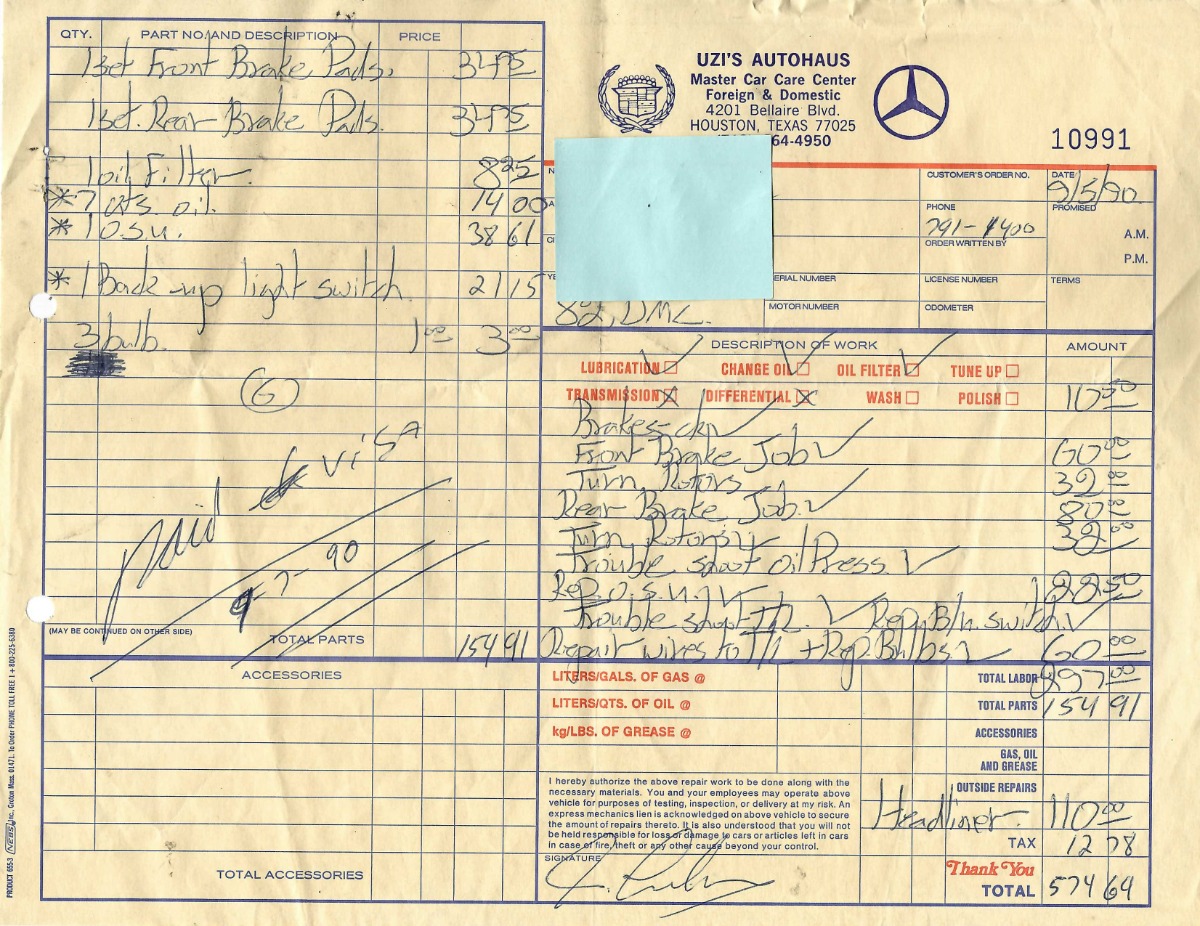 QTY. PART NO. AND DESCRIPTION PRICE
1 Set Front Brake Pads. 34 95
1 Set. Rear Brake Pads. 34 95
1 oil Filter. 8 25
* 7 qts. oil. 14 00
* 1 O.S.U. 38 61
* 1 Back-up light switch. 21 15
3 bulb. 1 00 3 00
G
paid visa
9-7-90
(MAY BE CONTINUED ON OTHER SIDE)
TOTAL PARTS 154 91
ACCESSORIES
TOTAL ACCESSORIES
PRODUCT 655-3 NEBS Inc., Groton, Mass. 01471. To Order PHONE TOLL FREE 1 + 800-225-6380
UZI'S AUTOHAUS
Master Car Care Center
Foreign & Domestic
4201 Bellaire Blvd.
HOUSTON, TEXAS 77025
64-4950
10991
CUSTOMER'S ORDER NO.
DATE 9/5/90
PHONE 791-1400
PROMISED
A.M.
P.M.
ORDER WRITTEN BY
ERIAL NUMBER
LICENSE NUMBER
TERMS
82, DMC.
MOTOR NUMBER
ODOMETER
DESCRIPTION OF WORK AMOUNT
LUBRICATION CHANGE OIL OIL FILTER TUNE UP
TRANSMISSION DIFFERENTIAL WASH POLISH 10 50
Brakes-ckn
Front Brake Job 60 00
Turn Rotors 32 00
Rear Brake Job. 80 00
Turn Rotors 32 00
Trouble shoot Oil Press.
Rep. O.S.U. 22 50
Trouble shoot T/L. Rep. B/u. switch.
Repair wires to T/L + Rep. Bulbs 60 00
LITERS/GALS. OF GAS @
TOTAL LABOR 297 00
LITERS/QTS. OF OIL @
TOTAL PARTS 154 91
kg/LBS. OF GREASE @
ACCESSORIES
GAS, OIL
AND GREASE
I hereby authorize the above repair work to be done along with the
necessary materials. You and your employees may operate above
vehicle for purposes of testing, inspection, or delivery at my risk. An
express mechanics lien is acknowledged on above vehicle to secure
the amount of repairs thereto. It is also understood that you will not
be held responsible for loss or damage to cars or articles left in cars
in case of fire, theft or any other cause beyond your control.
SIGNATURE
OUTSIDE REPAIRS
Headliner. 110 00
TAX 12 78
Thank You
TOTAL 574 69